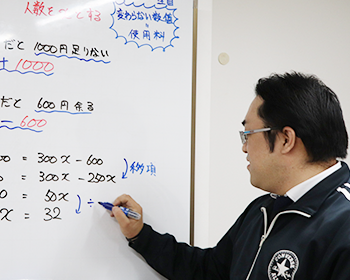 人数を
とする
変わらない数値
=
使用料
だと 1000円足りない
+ 1000
だと 600円余る
- 600
00 = 300x - 600
0 = 300x - 250x
移項
0 = 50x
÷
x = 32